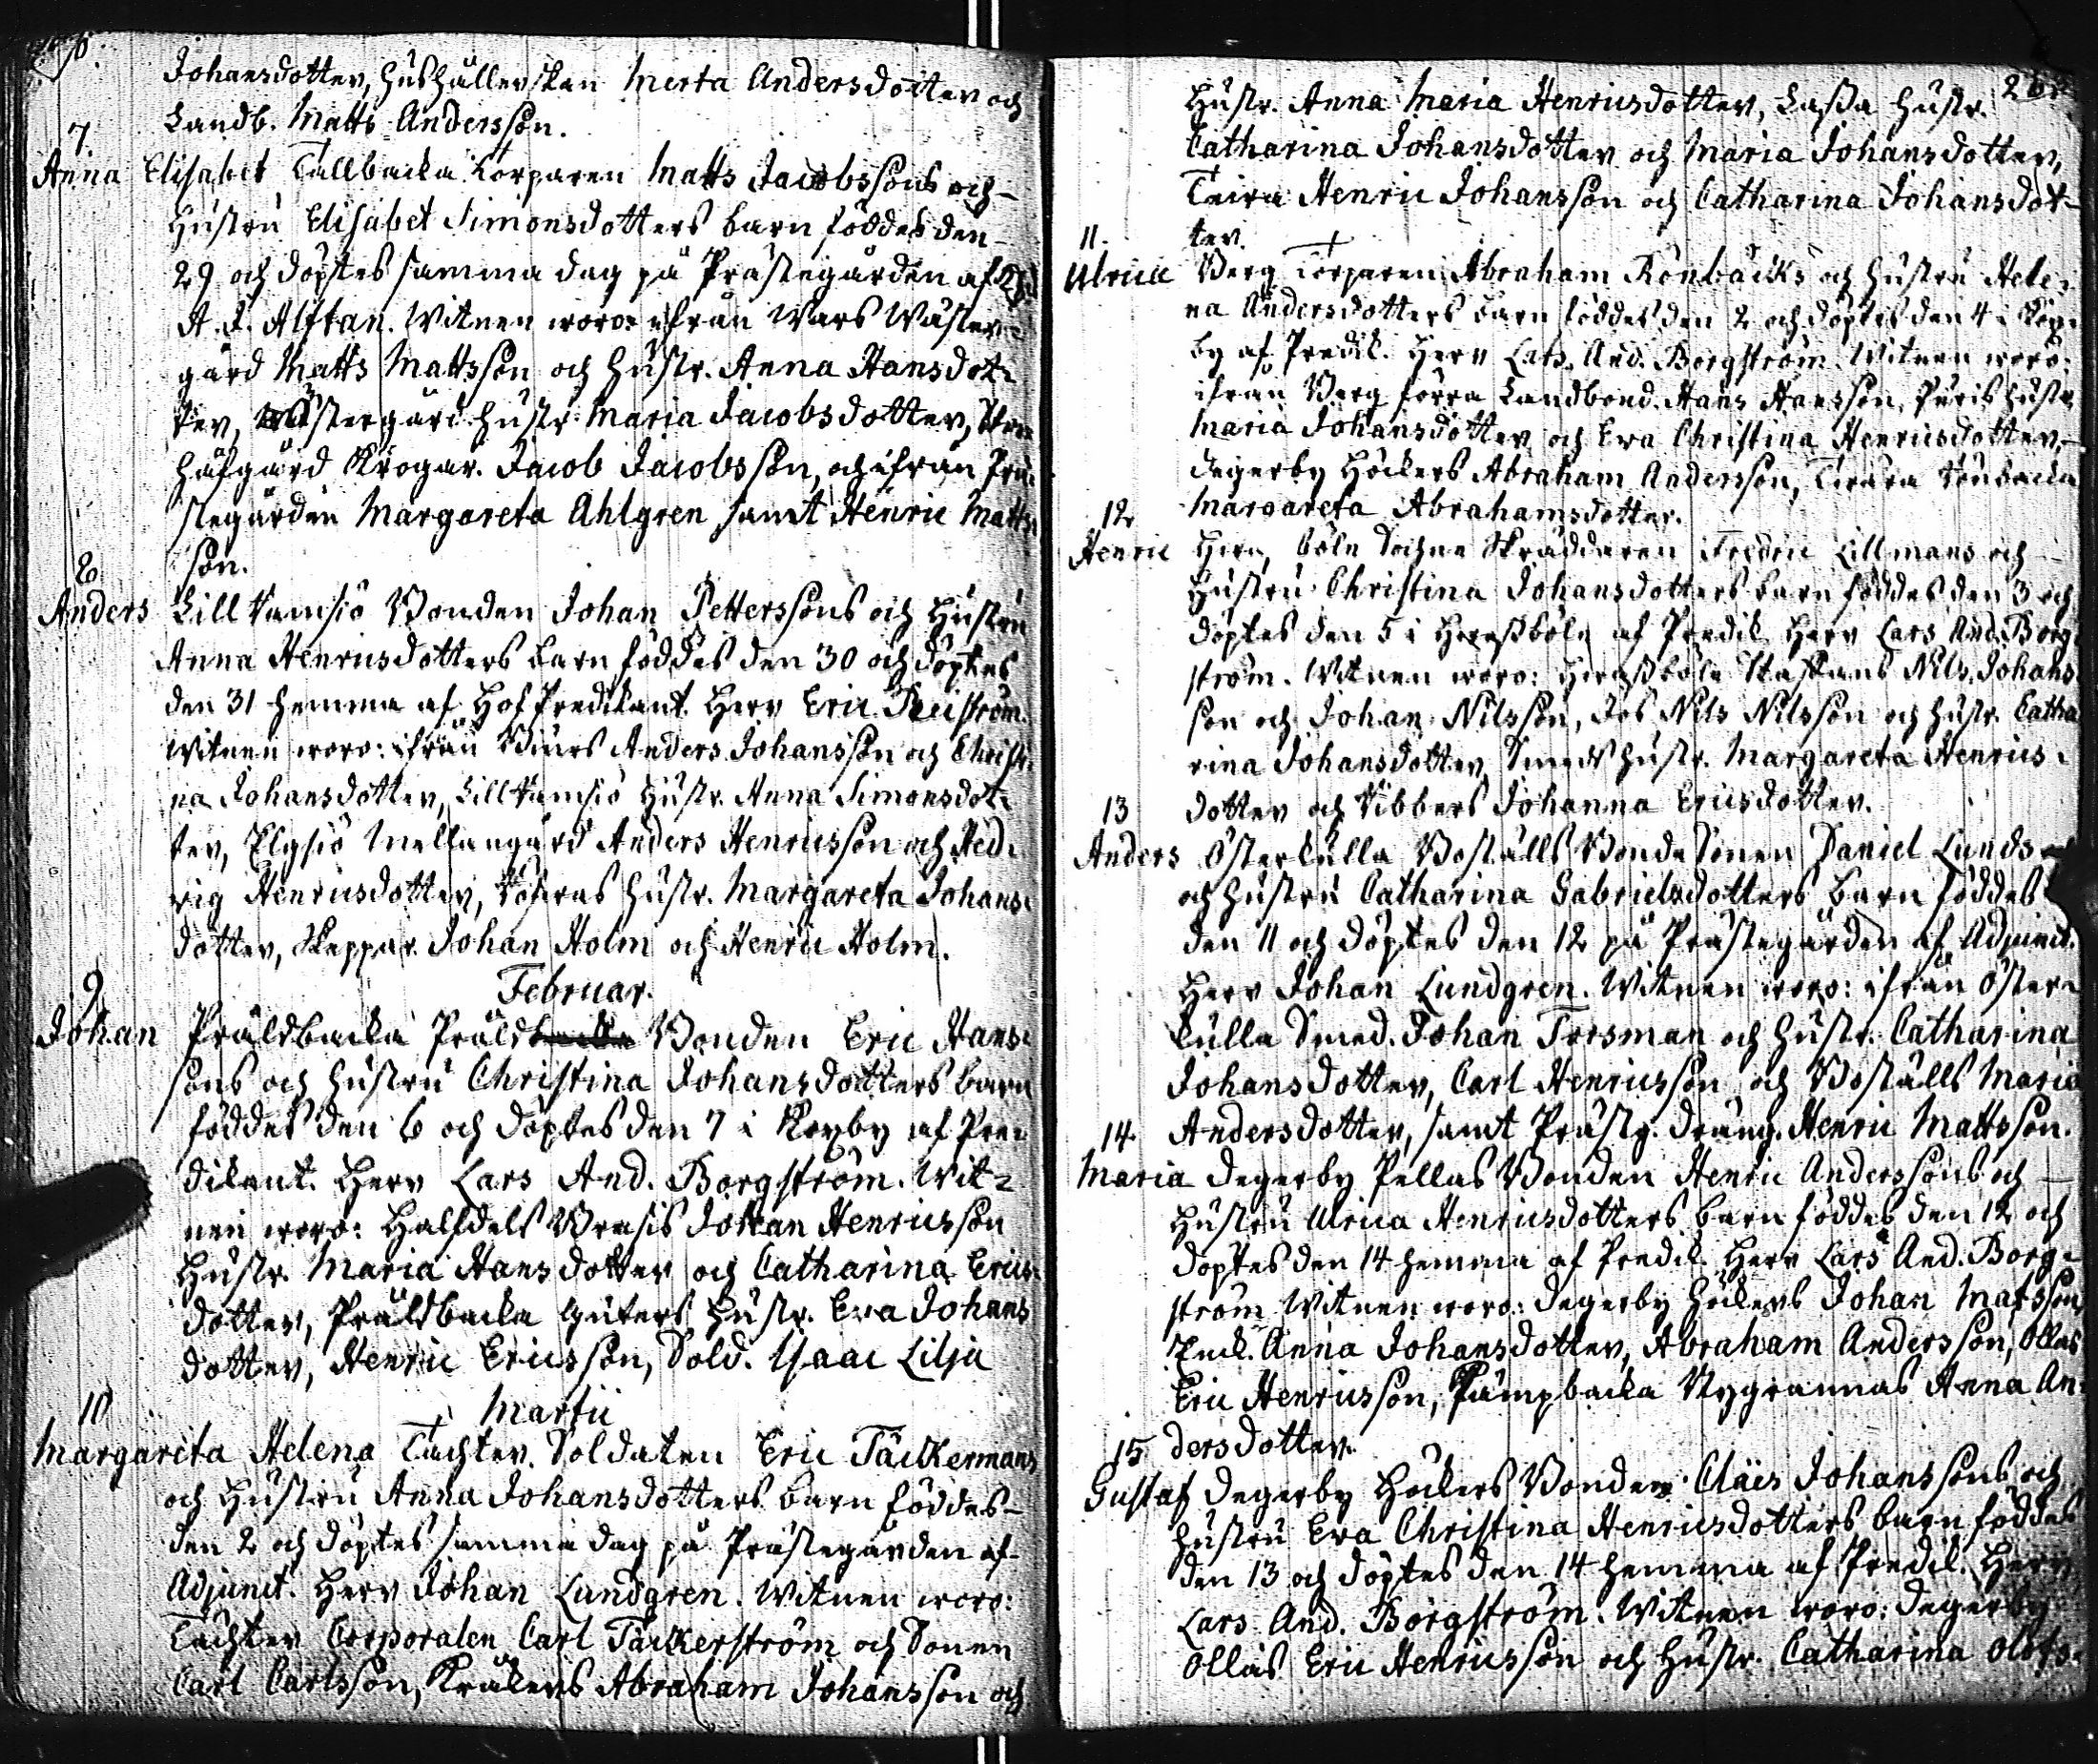 Johansdotter, Hushållerskan Merta Andersdotter och
Landb. Matts Andersson.
7
Anna Elisabet Tallbacka Torparen Matts Jacobssons och
Hustru Elisabet Simonsdotters barn föddes den
29 och döptes samma dag på Prästegården af
A. J. Alftan. Witnen woro: ifrån Wars Wäster
gård Matts Mattsson och Hustr. Anna Hansdot-
ter, Wästergård Hustr. Maria Jacobsdotter,
Hafgård Krogar. Jacob Jacobsson, och ifrån Prä-
stegården Margareta Ahlgren samt Henric Matts-
son.
8
Anders Lill Ramsiö Bonden Johan Petterssons och Hustru
Anna Henricsdotters barn föddes den 30 och döptes
den 31 hemma af Hof Predikant. Herr Eric
Witnen woro: ifrån Anders Johansson och Christi-
na Johansdotter, Lill Ramsiö Hustr. Anna Simonsdot-
ter, Elgsiö Mellangård Anders Henricsson och Hed-
vig Henricsdotter, Hustr. Margareta Johans-
dotter, Skeppar. Johan Holm och Henric Holm.
Februar.
9
Johan Präldbacka Präld Bonden Eric Hans-
sons och Hustru Christina Johansdotters barn
föddes den 6 och döptes den 7 i af Pre-
dikant. Herr Lars And. Borgström. Wit-
nen woro: Halfdels Johan Henricsson
Hustr. Maria Hansdotter och Catharina Erics-
dotter, Präldbacka Hustr. Eva Johans
dotter, Henric Ericsson, Sold. Isaac Lilja
Martii
10
Margareta Helena Täckter. Soldaten Eric Täckermans
och Hustru Anna Johansdotters barn föddes
den 2 och döptes samma dag på Prästegården af
Adjunct. Herr Johan Lundgren. Witnen woro:
Täckter Corporalen Carl Täckerström och Sonen
Carl Carlsson, Krökers Abraham Johansson och
Hustr. Anna Maria Henricsdotter, Lassa Hustr.
Catharina Johansdotter och Maria Johansdotter,
Henric Johansson och Catharina Johansdot-
ter.
11.
Ulrica Berg Torparen Abraham Rönbäcks och Hustru Hele-
na Andersdotters barn föddes den 2 och döptes den 4 i
by af Predik. Herr Lars And. Borgström. Witnen woro:
ifrån Berg förra Landbond. Hans Hansson, Hustr.
Maria Johansdotter och Eva Christina Henricsdotter,
Degerby Höckers Abraham Andersson,
Margareta Abrahamsdotter.
12
Henric böle Sockne Skräddaren Fredric Lillmans och
Hustru Christina Johansdotters barn föddes den 3 och
döptes den 5 i af Predik. Herr Lars And. Borg-
ström. Witnen woro: Nils Johans
son och Johan Nilsson, Nils Nilsson och Hustr. Catha
rina Johansdotter, Smeds Hustr. Margareta Henrics-
dotter och Johanna Ericsdotter.
13
Anders Österkulla Boställs Bonde Sonen Daniel Lunds
och Hustru Catharina Gabrielsdotters barn föddes
den 11 och döptes den 12 på Prästegården af Adjunct.
Herr Johan Lundgren. Witnen woro: ifrån Öster-
kulla Smed. Johan Forsman och Hustr. Catharina
Johansdotter, Carl Henricsson och Boställs Maria
Andersdotter, samt Prästg. Dräng. Henric Mattsson.
14.
Maria Degerby Pellas Bonden Henric Anderssons och
Hustru Ulrica Henricsdotters barn föddes den 12 och
döptes den 14 hemma af Predik. Herr Lars And. Borg-
ström. Witnen woro: Degerby Höckers Johan Matsson,
Anna Johansdotter, Abraham Andersson, Ollas
Eric Henricsson, Nygrannas Anna An-
dersdotter.
15
Gustaf Degerby Höckers Bonden Claës Johanssons och
Hustru Eva Christina Henricsdotters barn föddes
den 13 och döptes den 14 hemma af Predik. Herr
Lars And. Borgström. Witnen woro: Degerby
Ollas Eric Henricsson och Hustr. Catharina Olofs-